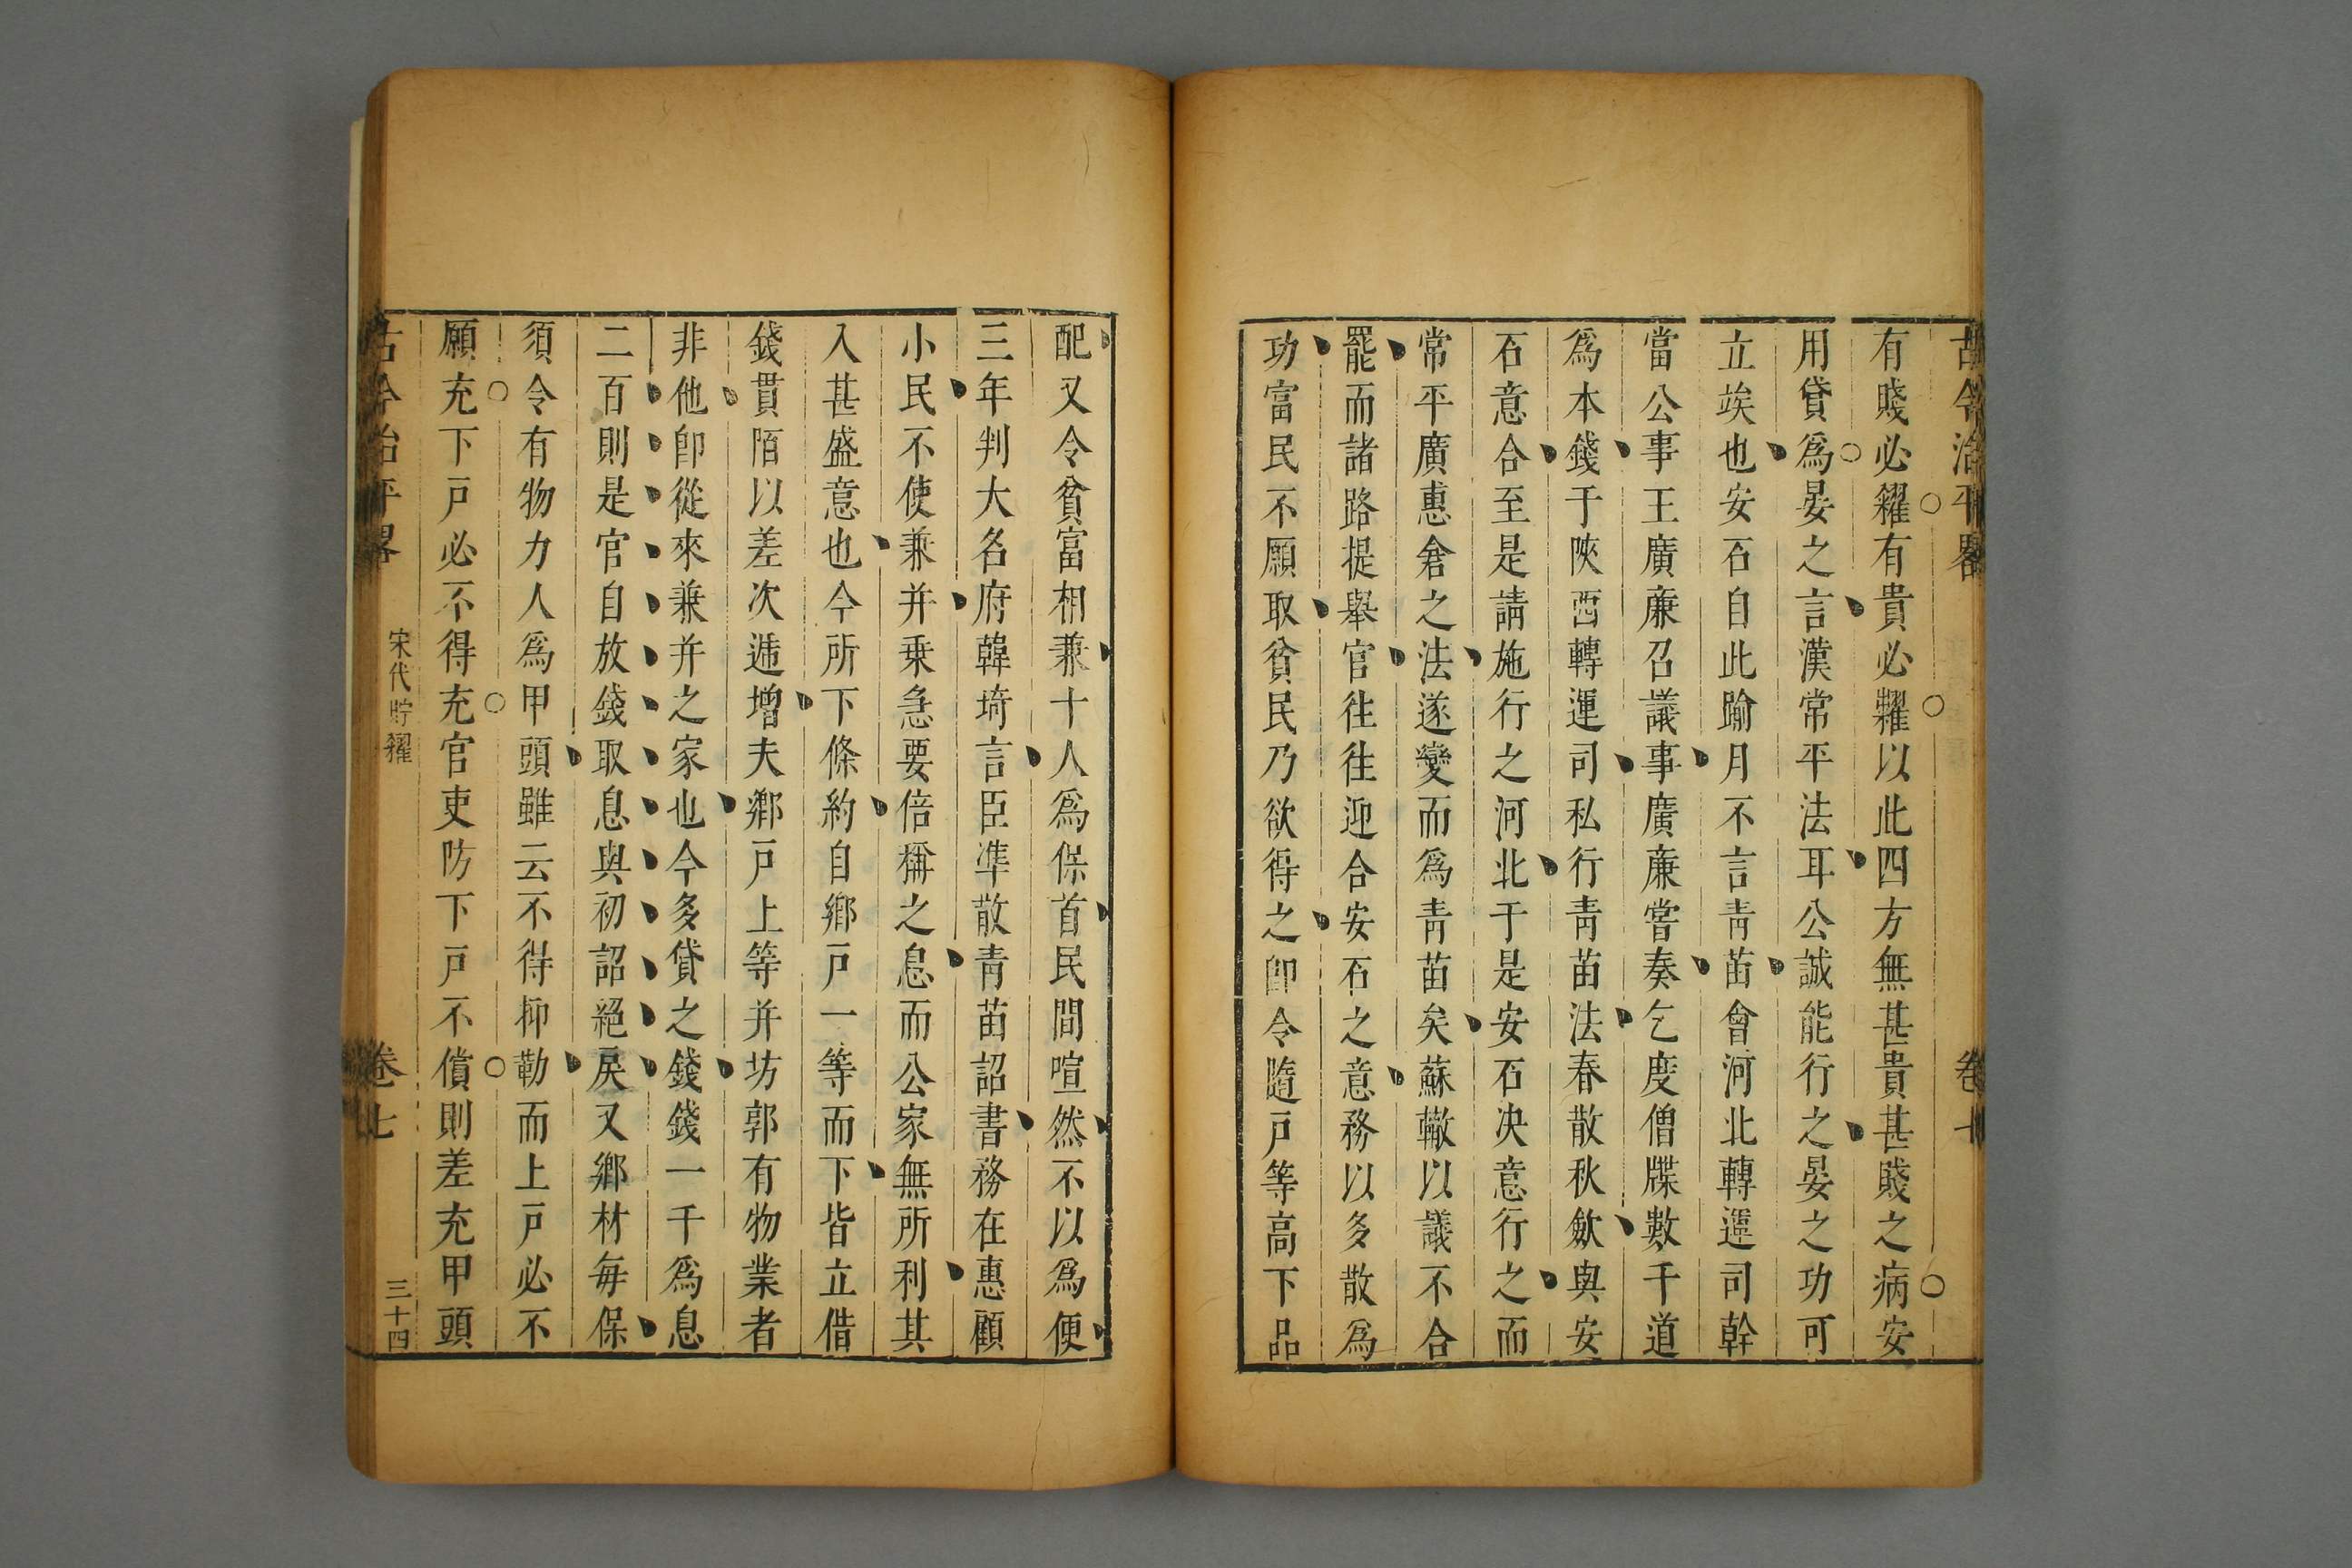 古今治平畧 卷七
有賤必糴有貴必糶以此四方無甚貴甚賤之病安
用貸爲晏之言漢常平法耳公誠能行之晏之功可
立竢也安石自此踰月不言靑苗會河北轉運司幹
當公事王廣廉召議事廣廉嘗奏乞度僧牒數千道
爲本錢于陝西轉運司私行靑苗法春散秋歛與安
石意合至是請施行之河北于是安石决意行之而
常平廣惠倉之法遂變而爲靑苗矣蘇轍以議不合
罷而諸路提舉官往往迎合安石之意務以多散爲
功富民不願取貧民乃欲得之卽令隨戸等高下品
配又令貧富相兼十人爲保首民間喧然不以爲便
三年判大名府韓琦言臣準散靑苗詔書務在惠顧
小民不使兼并乗急要倍稱之息而公家無所利其
入甚盛意也今所下條約自鄕戸一等而下皆立借
錢貫陌以差次遞增夫鄕戸上等并坊郭有物業者
非他卽從來兼并之家也今多貸之錢錢一千爲息
二百則是官自放錢取息與初詔絕戾又鄕材每保
須令有物力人爲甲頭雖云不得抑勒而上戸必不
願充下戸必不得充官吏防下戸不償則差充甲頭
古今治平畧 宋代貯糴 卷七 三十四